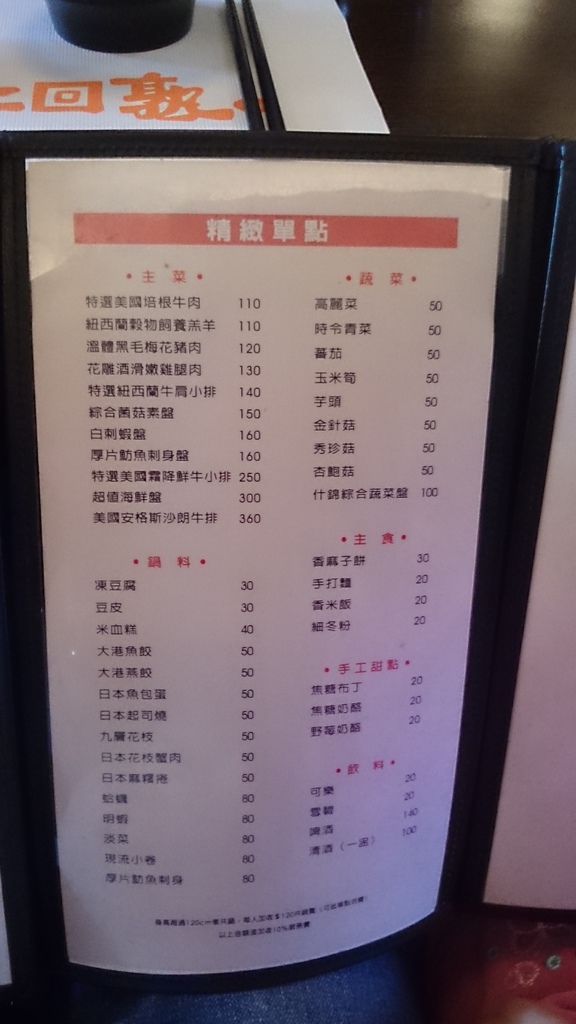 二回熟
精緻單點
• 主 菜 •
特選美國培根牛肉 110
紐西蘭穀物飼養羔羊 110
溫體黑毛梅花豬肉 120
花雕酒滑嫩雞腿肉 130
特選紐西蘭牛肩小排 140
綜合菌菇素盤 150
白刺蝦盤 160
厚片魴魚刺身盤 160
特選美國霜降鮮牛小排 250
超值海鮮盤 300
美國安格斯沙朗牛排 360
• 鍋 料 •
凍豆腐 30
豆皮 30
米血糕 40
大港魚餃 50
大港燕餃 50
日本魚包蛋 50
日本起司燒 50
九層花枝 50
日本花枝蟹肉 50
日本麻糬捲 50
蛤蠣 80
明蝦 80
淡菜 80
現流小卷 80
厚片魴魚刺身 80
• 蔬 菜 •
高麗菜 50
時令青菜 50
蕃茄 50
玉米筍 50
芋頭 50
金針菇 50
秀珍菇 50
杏鮑菇 50
什錦綜合蔬菜盤 100
• 主 食 •
香麻子餅 30
手打麵 20
香米飯 20
細冬粉 20
• 手工甜點 •
焦糖布丁 20
焦糖奶酪 20
野莓奶酪 20
• 飲 料 •
可樂 20
雪碧 20
啤酒 140
清酒（一壺） 100
身高超過120cm需共鍋，每人加收$120共鍋費（可抵單點消費）
以上金額須加收10%服務費